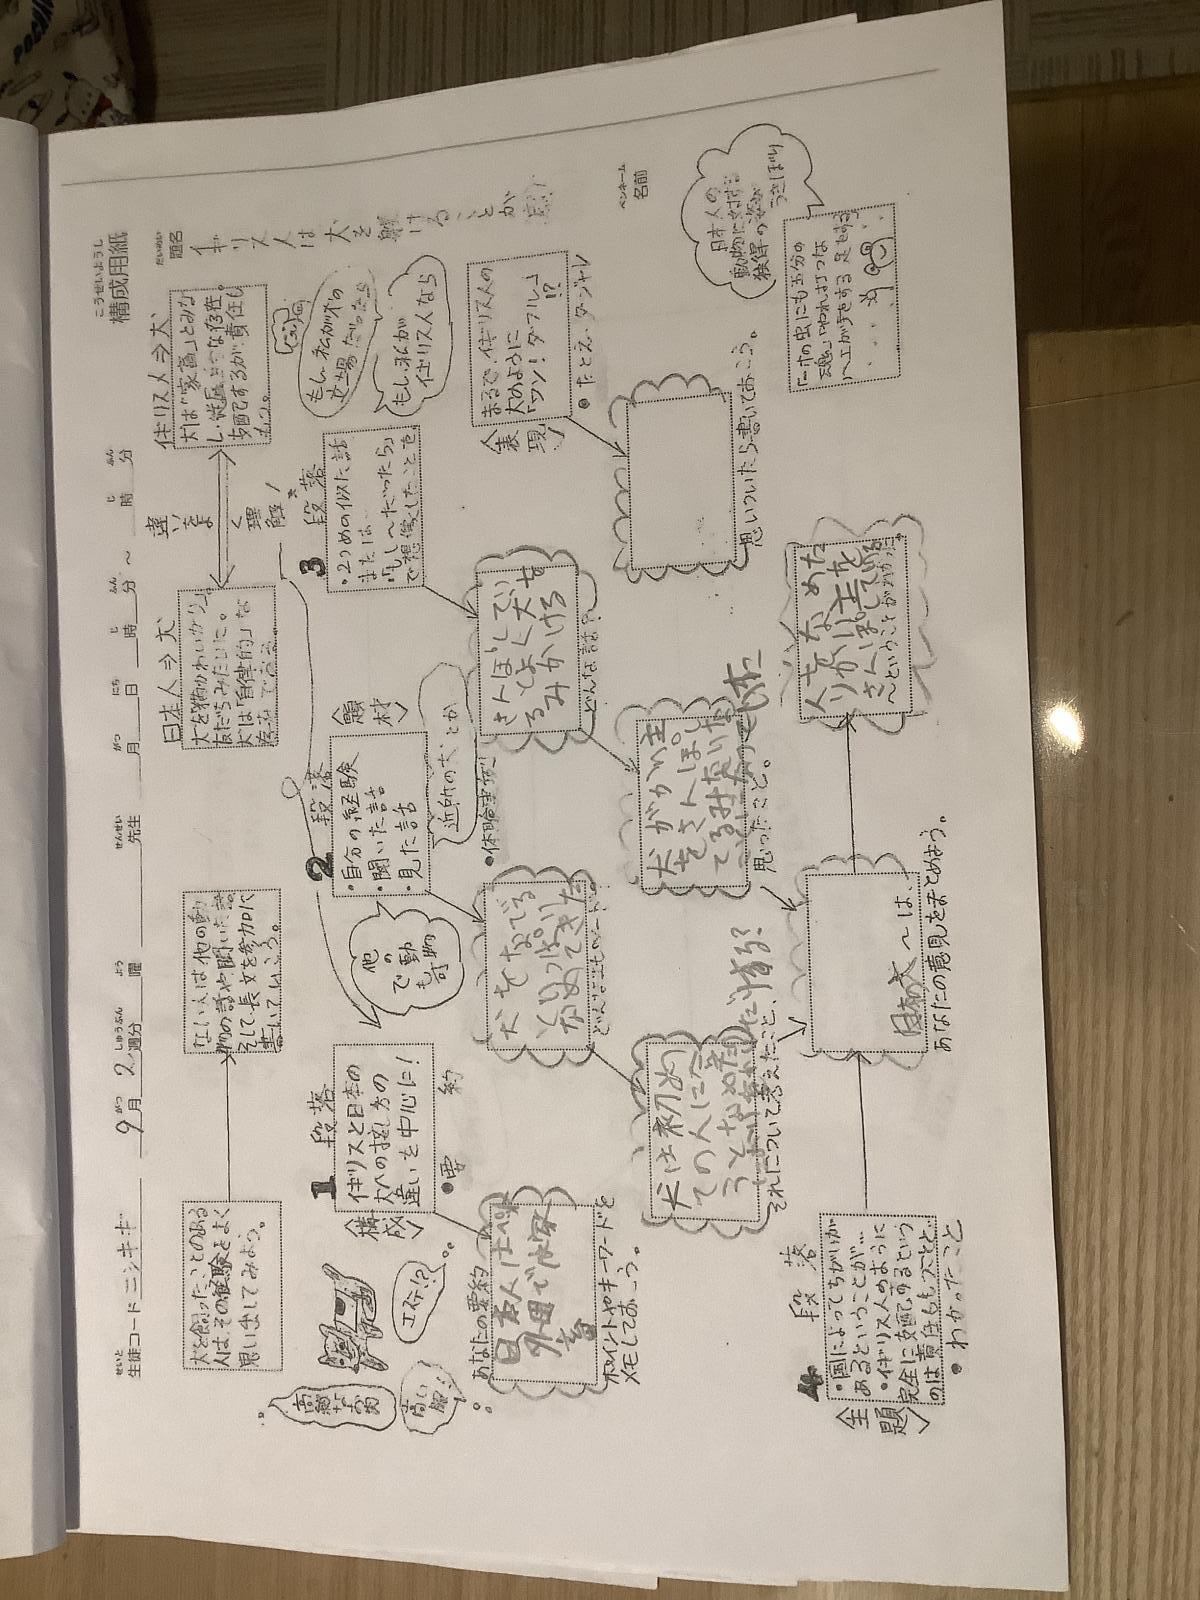 こうせいようし
構成用紙
だいめい
題名
イギリス人は犬を躾けることが
ペンネーム
名前
せいと
生徒コード ニシキギ
9月 2 週分
がつ しゅうぶん
よう
曜
せんせい
先生
がつ にち じ ふん じ ふん
月 日 時 分 ~ 時 分
犬を飼ったことのある
人はその経験をよく
思い出してみよう。
ない人は他の動
物の話や聞いた話
そして長文を参加に
書いてしまおう。
日本人⇒犬
犬を猫かわいがり。
友だちみたいに。
犬は「自律的」な
違いをよ
く理
解!
イギリス人⇒犬
犬は「家畜」とみな
し、従属的な存在。
支配するが責任も
もつ。
1
段落
〈構成〉
イギリスと日本の
犬への接し方の
違いを中心に!
●要約
高い服!!
エヘン!?
他の
動物
でも可
2
段落
〈題材〉
・自分の経験
・聞いた話
・見た話
近所の犬とか
●体験実例
3
段落
・2つめの似た話
または…
「もし〜だったら」
で想像したことを
もし、私が犬の
立場だったら
もし私が
イギリス人なら
〈表現〉
まるで、イギリス人の
犬のように
「ワン!ダフル」
!?
●たとえ・ダジャレ
あなたの要約
日本人はペット
外国では家
畜
ポイントやキーワードを
メモしておこう。
犬をなでる
としっぽをふり
なめてきた
犬は初め
ての人に会
うとなめた
それについて考えたこと、
さんぽしてい
るとよく犬を
みかける
どんな話?
犬がかい主
をさんぽし
てるみたいな
思ったこと。
思いついたら書いておこう。
日本人の
動物に対する
独特の姿が
うきぼり
「一寸の虫にも五分の
魂」「やれ打つな
ハエが手をする足をする
4
段落
〈主題〉
・国によってちがいが
あるということが…
・イギリス人のように
完全に支配するという
のは責任ももつことだ。
●わかったこと
~は、
あなたの意見をまとめよう。
人をなめた
りかい主を
さんぽしている
~ということがわかった